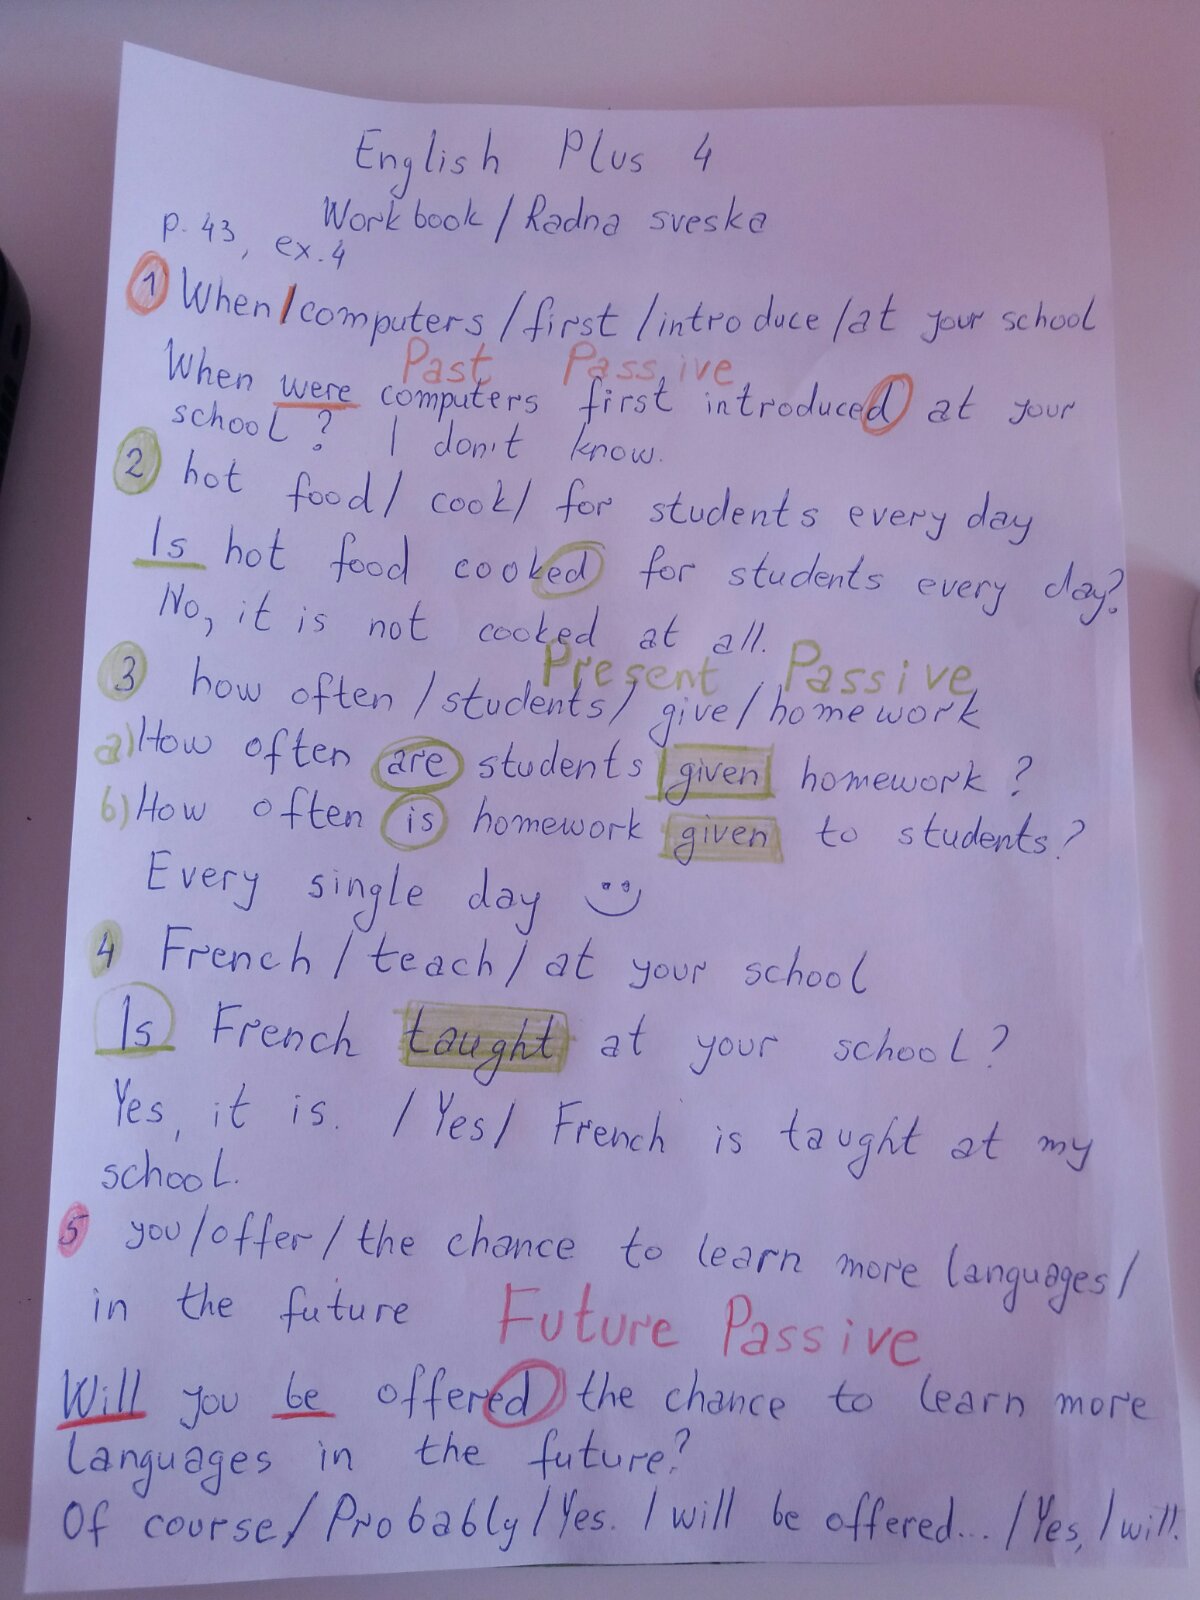 English Plus 4
Workbook / Radna sveska
p. 43, ex. 4
1 When / computers / first / introduce / at your school
Past Passive
When were computers first introduced at your
school? I don't know.
2 hot food / cook / for students every day
Is hot food cooked for students every day?
No, it is not cooked at all.
Present Passive
3 how often / students / give / homework
a) How often are students given homework?
b) How often is homework given to students?
Every single day
4 French / teach / at your school
Is French taught at your school?
Yes, it is. / Yes / French is taught at my
school.
5 you / offer / the chance to learn more languages /
in the future
Future Passive
Will you be offered the chance to learn more
languages in the future?
Of course / Probably / Yes. I will be offered... / Yes, I will.